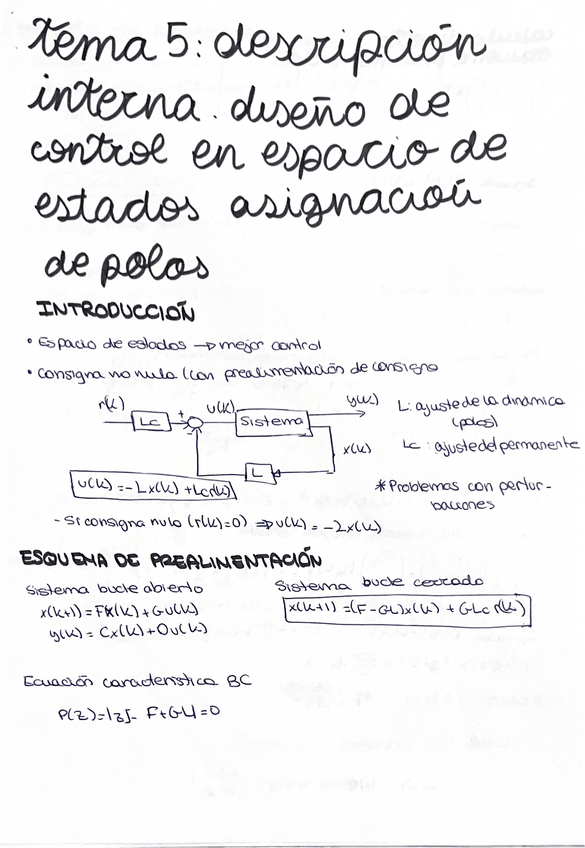 tema 5: descripción
interna. diseño de
control en espacio de
estados asignación
de polos
INTRODUCCIÓN
• Espacio de estados → mejor control
• consigna no nula (con prealimentación de consigna
r(k)
Lc
+
-
u(k)
Sistema
y(k)
x(k)
L
L: ajuste de la dinámica
(polos)
Lc: ajuste del permanente
u(k) = -Lx(k) + Lc r(k)
* Problemas con pertur-
baciones
- Si consigna nula (r(k)=0) ⇒ u(k) = -Lx(k)
ESQUEMA DE PREALINENTACIÓN
Sistema bucle abierto
x(k+1) = Fx(k) + Gu(k)
y(k) = Cx(k) + Du(k)
Sistema bucle cerrado
x(k+1) = (F-GL)x(k) + GLc r(k)
Ecuación característica BC
P(z)=|zI- F+GL|=0